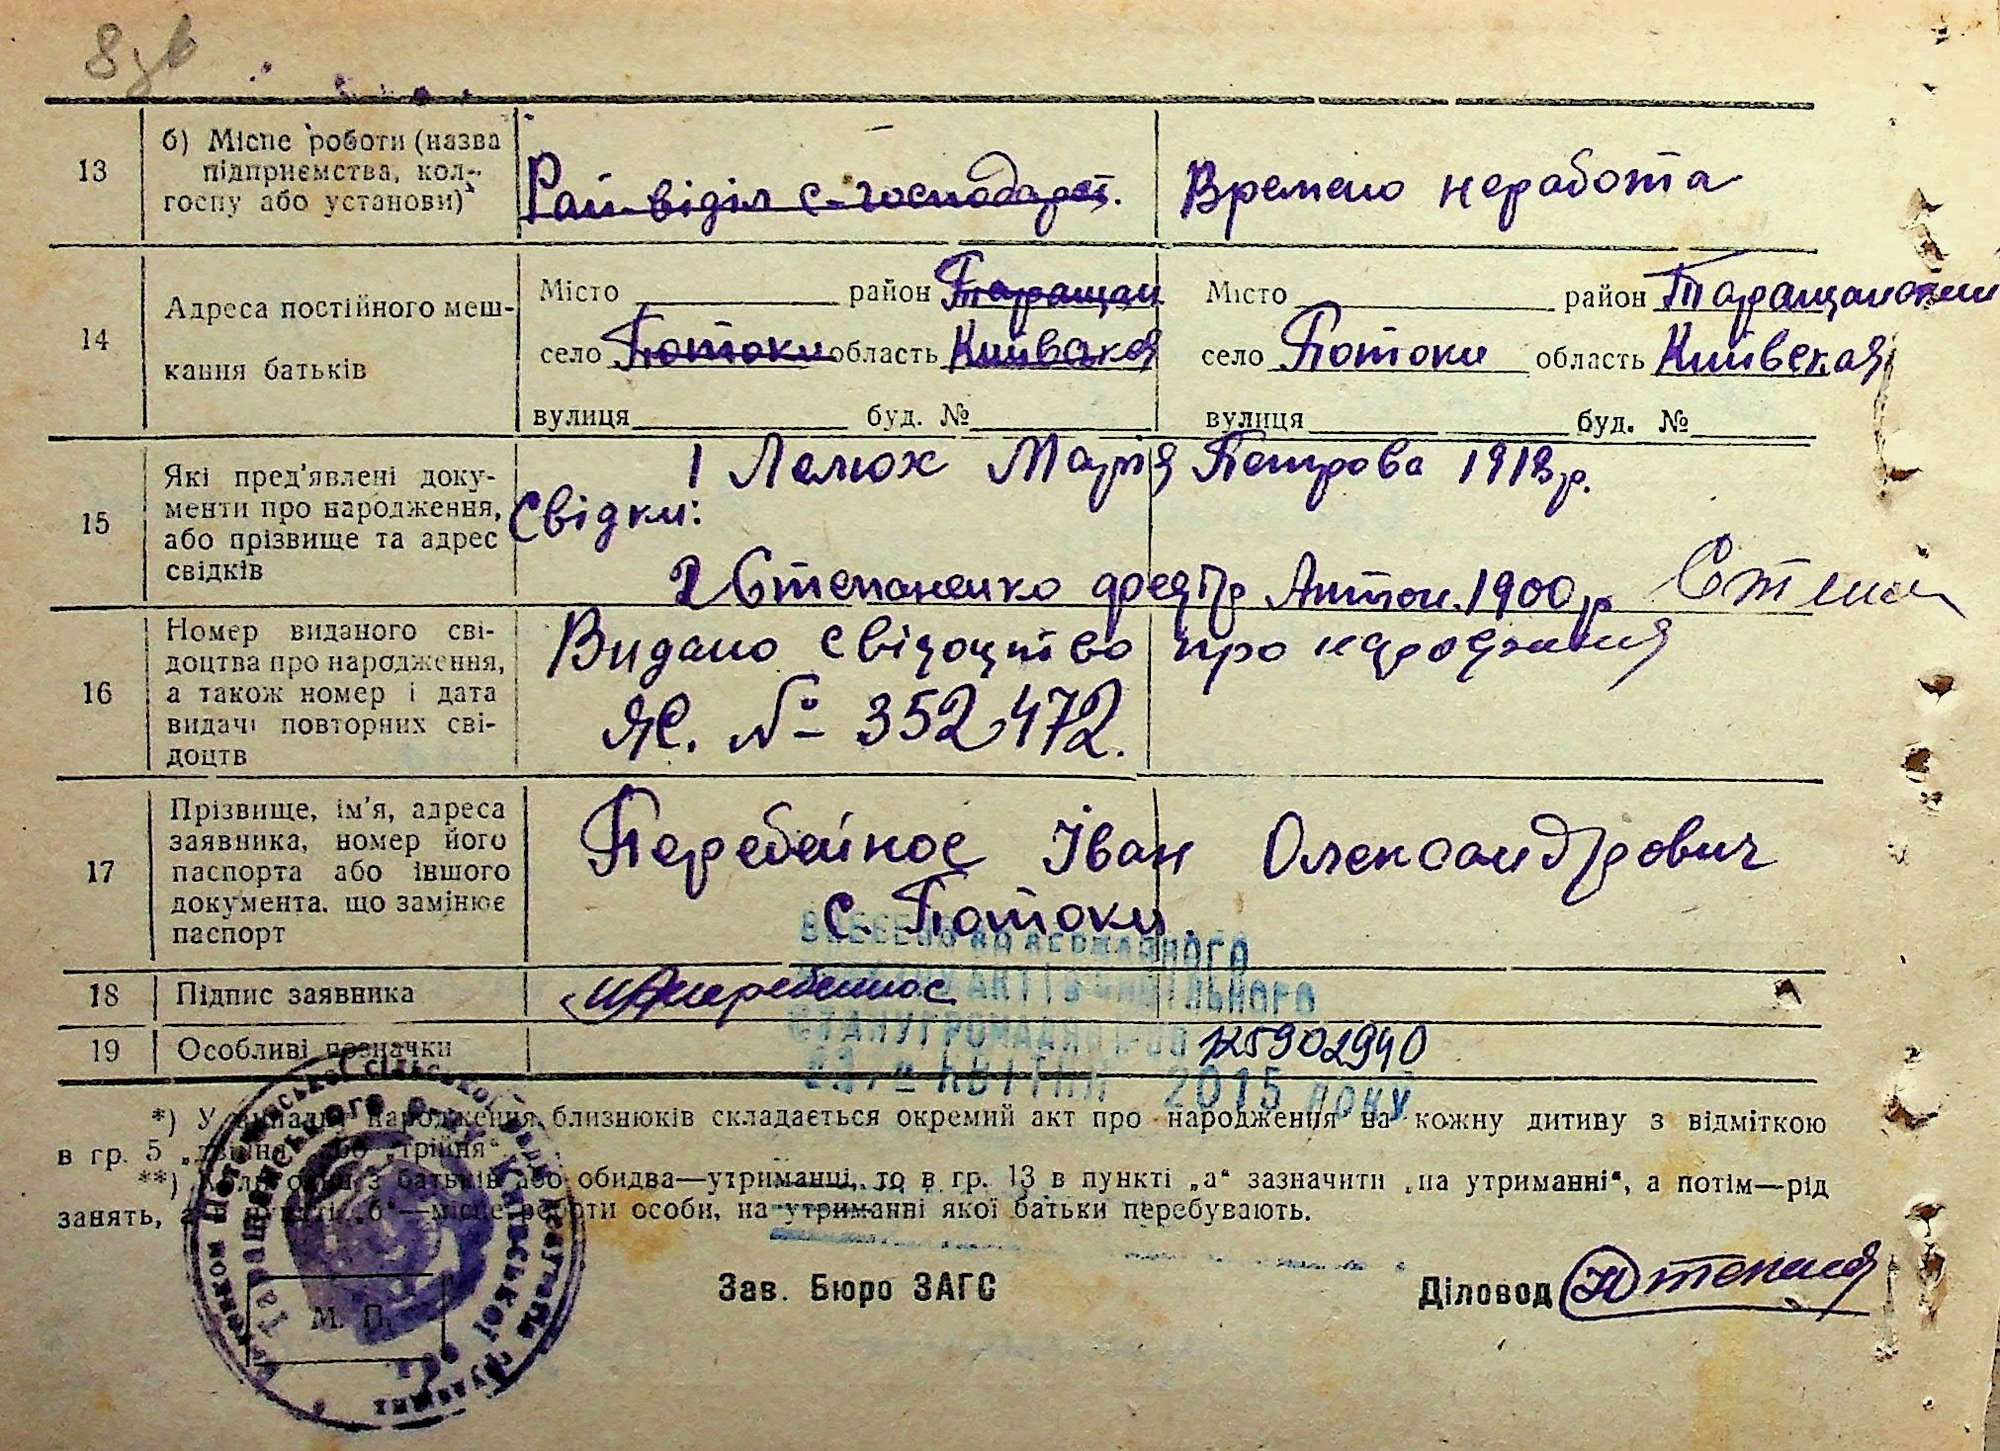 8зв
13 б) Місце роботи (назва підприємства, колгоспу або установи) Рай-відділ с-господарст. Времено неработа
14 Адреса постійного мешкання батьків
Місто район Таращан Місто район Таращанский
село Потоки область Київская село Потоки область Київская
вулиця буд. № вулиця буд. №
15 Які пред'явлені документи про народження, або прізвище та адрес свідків
1 Лелюх Марія Петрова 1918 р.
Свідки:
2 Степаненко Антон. 1900 р
16 Номер виданого свідоцтва про народження, а також номер і дата видачі повторних свідоцтв
Видано свідоцтво про народження
ЯЄ. № 352472.
17 Прізвище, ім'я, адреса заявника, номер його паспорта або іншого документа, що замінює паспорт
Перебейнос Іван Олександрович
с. Потоки.
ВНЕСЕНО ДО ДЕРЖАВНОГО
АКТІВ ЦИВІЛЬНОГО
18 Підпис заявника
СТАНУ ГРОМАДЯН
19 Особливі позначки
КВІТНЯ 2015 РОКУ
*) У випадку народження близнюків складається окремий акт про народження на кожну дитину з відміткою
в гр. 5 „двійня“ або „трійня“
**) Коли один з батьків або обидва—утриманці, то в гр. 13 в пункті „а“ зазначити „на утриманні“, а потім—рід
занять, а в пункті „б“—місце роботи особи, на утриманні якої батьки перебувають.
М. П.
Зав. Бюро ЗАГС
Діловод